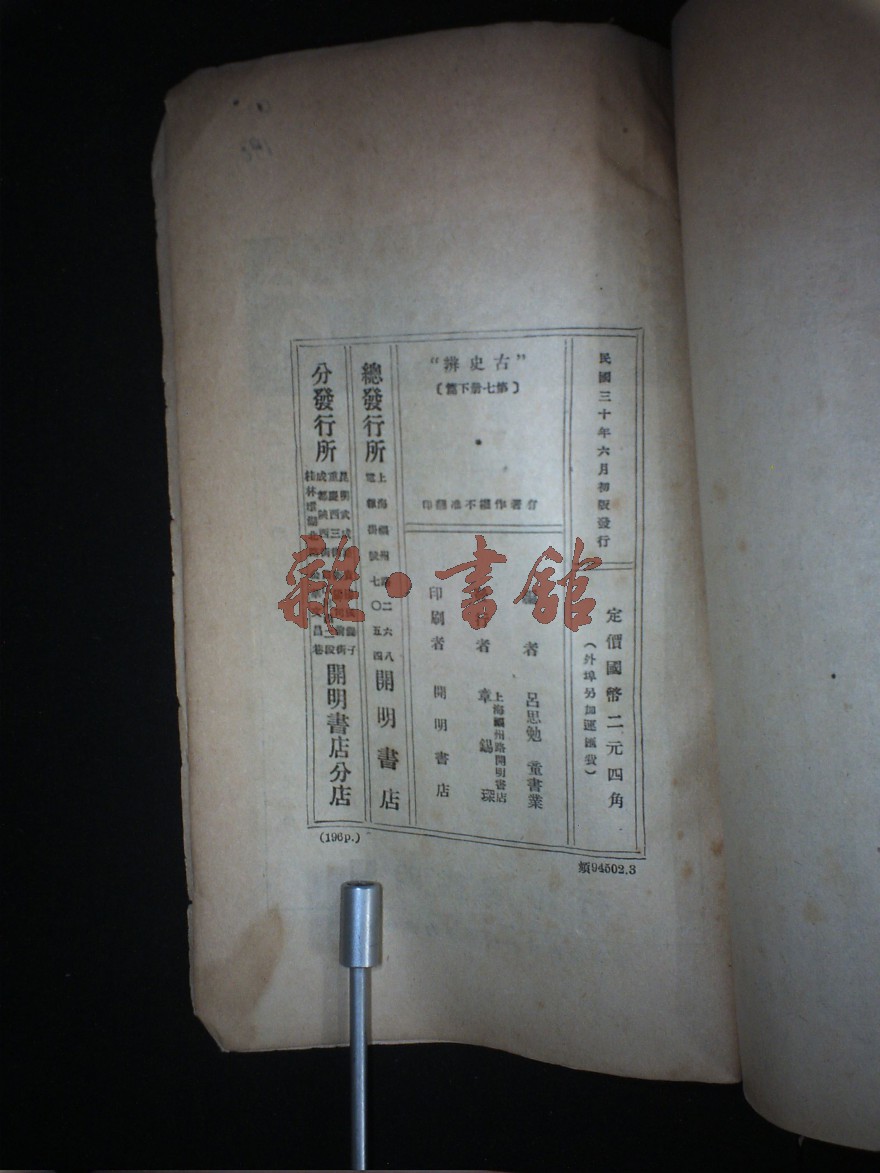 民國三十年六月初版發行
定價國幣二元四角
（外埠另加運匯費）
“古史辨”
（第七册下篇）
有著作權不准翻印
編者 呂思勉 童書業
者 章錫琛
上海福州路開明書店
印刷者 開明書店
總發行所
上海福州路二六八
電報掛號七〇五四
開明書店
分發行所
開明書店分店
(196p.)
類94502.3
雜·書館